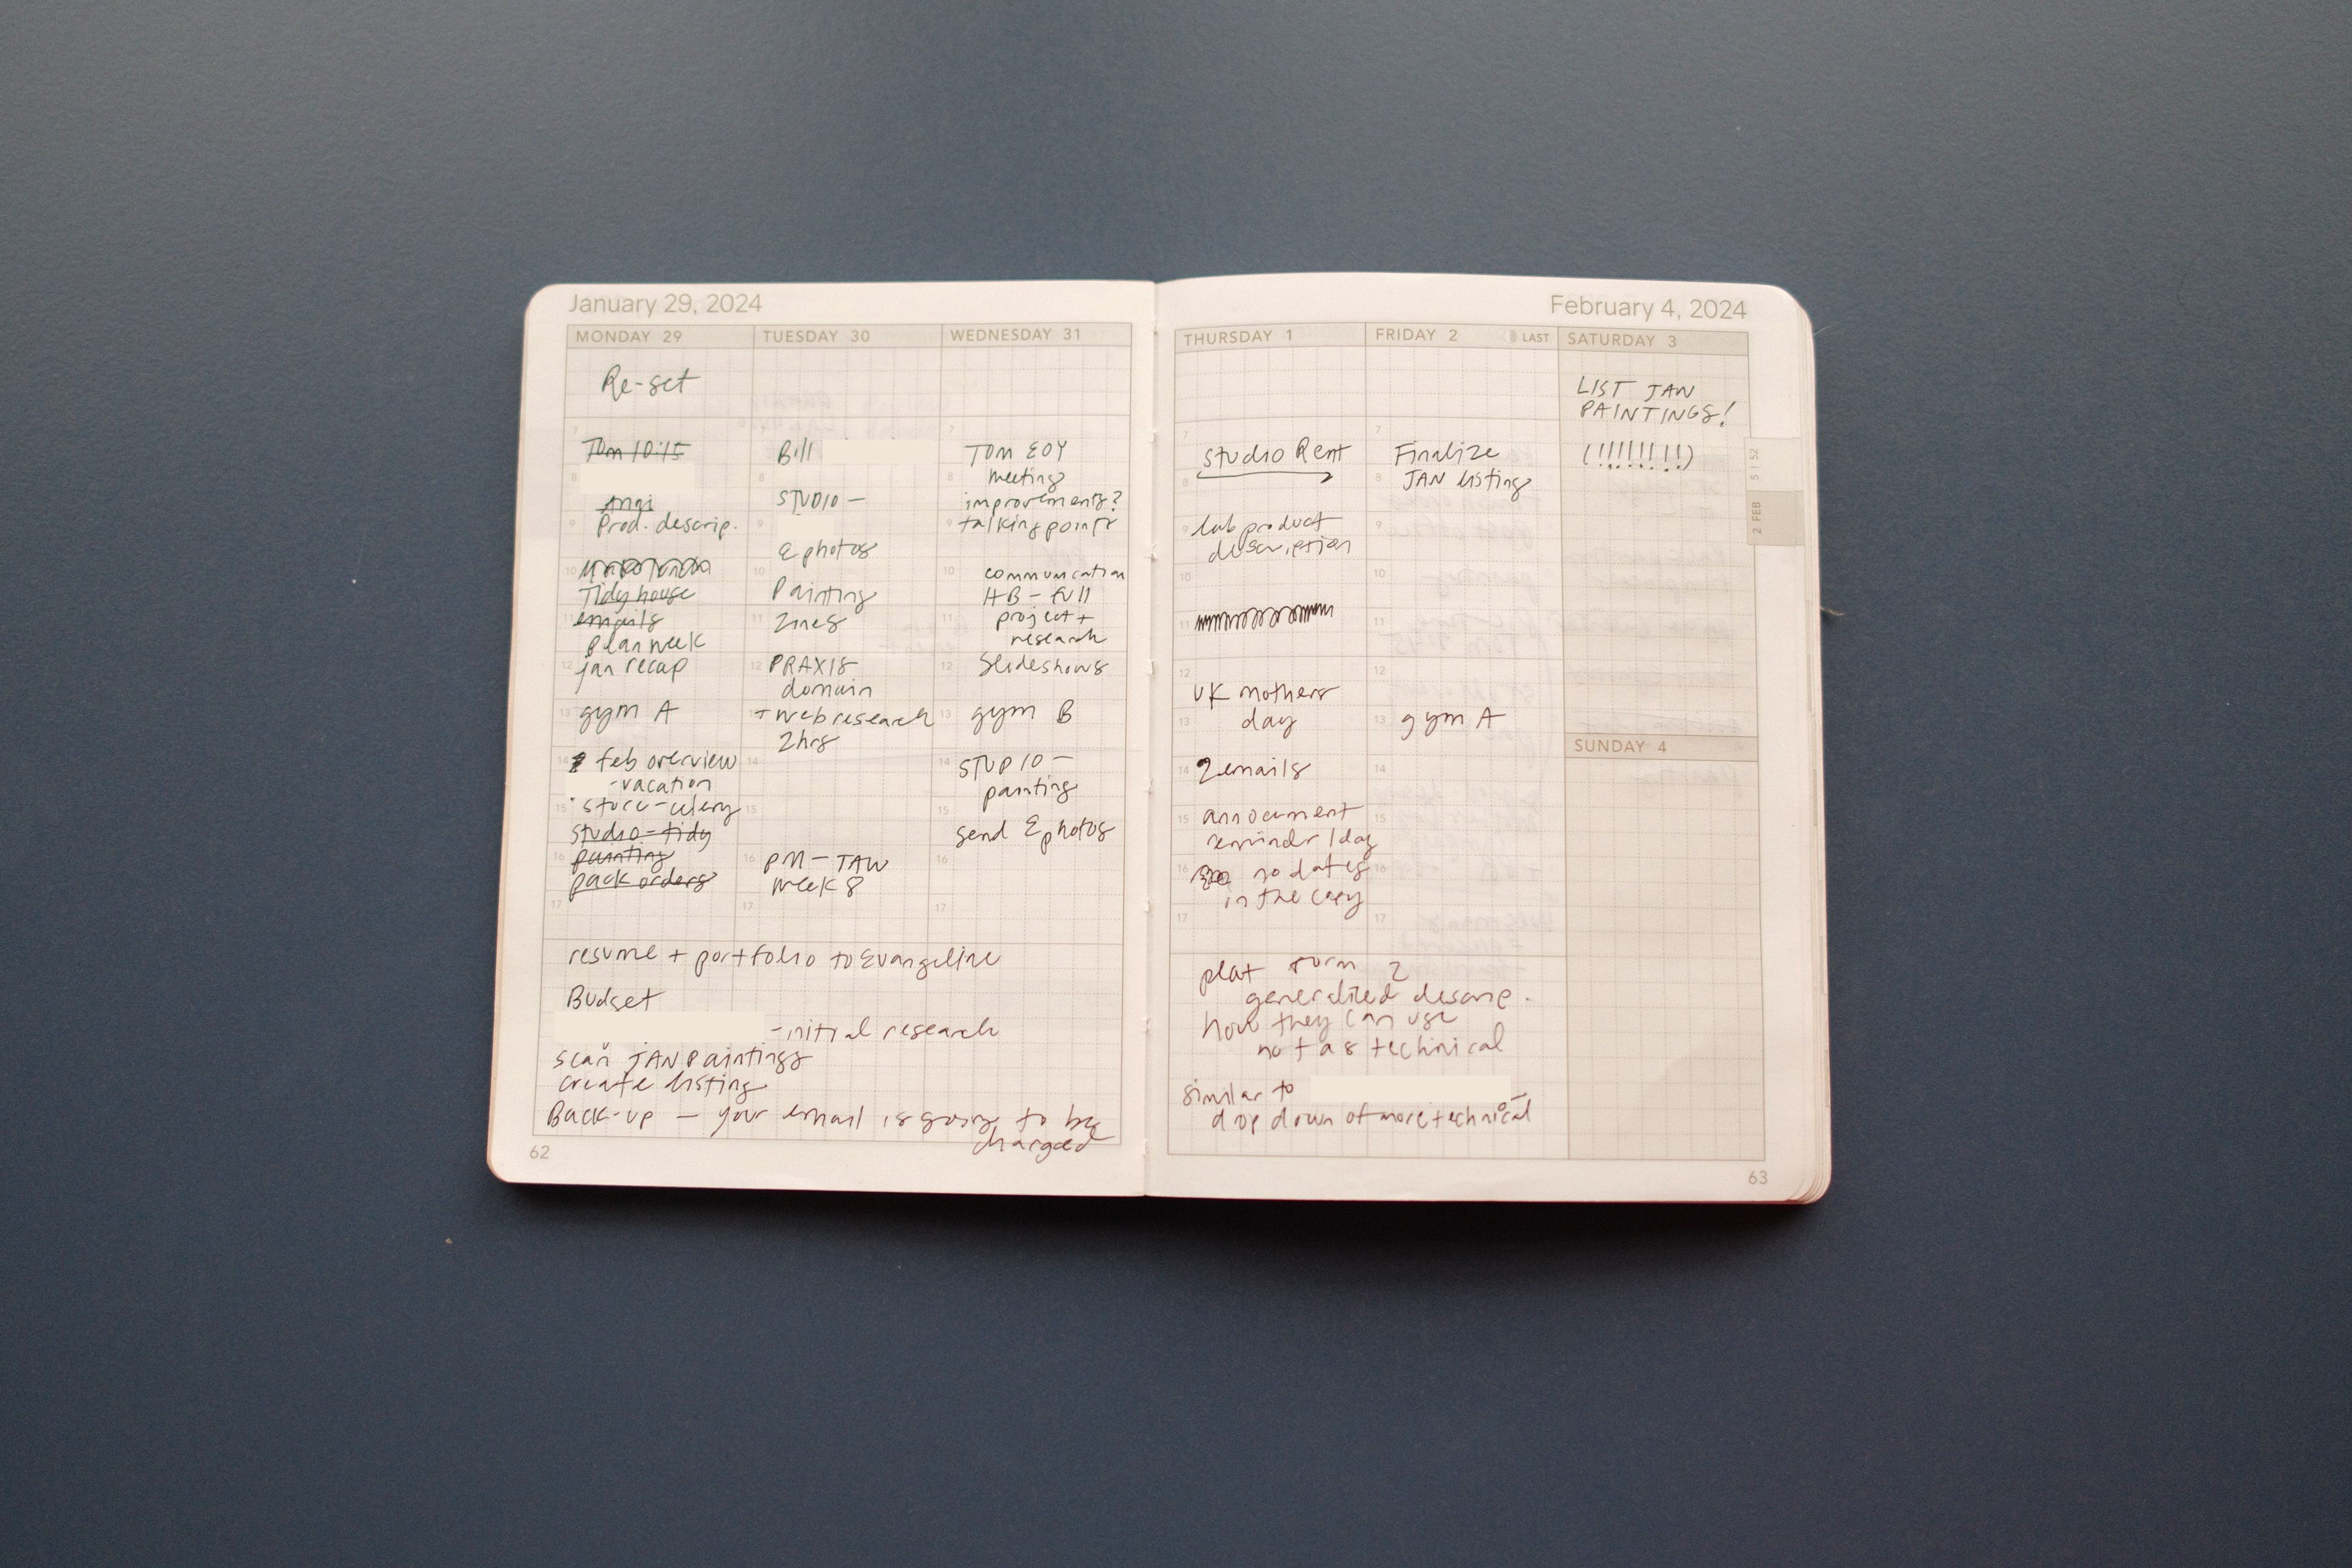 January 29, 2024
MONDAY 29
Re-set
7
Tom 10:15
8
Angi
9 Prod. descrip.
10
Tidy house
11 emails
plan week
12 jan recap
13 gym A
14 feb overview
-vacation
15 store-
studio-tidy
16 painting
pack orders
17
TUESDAY 30
7
Bill
8
STUDIO —
9
& photos
10
Painting
11 Zines
12 PRAXIS
domain
+ web research
2hrs
14
15
16 PM — TAW
week 8
17
WEDNESDAY 31
7
Tom EOY
8 meeting
improvements?
9 talking points
10 communcation
HB - full
11 project +
research
12 Slideshows
13 gym B
14 STUDIO —
painting
15
send & photos
16
17
resume + portfolio to Evangeline
Budget
- initial research
scan JAN Paintings
create listing
Back-up — your email is going to be
charged
62
February 4, 2024
THURSDAY 1
7
Studio Rent
8
9 lab product
description
10
11
12
UK mothers
13 day
14 2 emails
15 annoucment
remindr 1 day
16 no dates
in the copy
17
FRIDAY 2 LAST
7
Finalize
8 JAN listing
9
10
11
12
13 gym A
14
15
16
17
plat form 2
generalized descrip.
how they can use
not as technical
similar to
drop down of more technical
SATURDAY 3
LIST JAN
PAINTINGS!
(!!!!!!!!)
SUNDAY 4
5 | 52
2 FEB
63